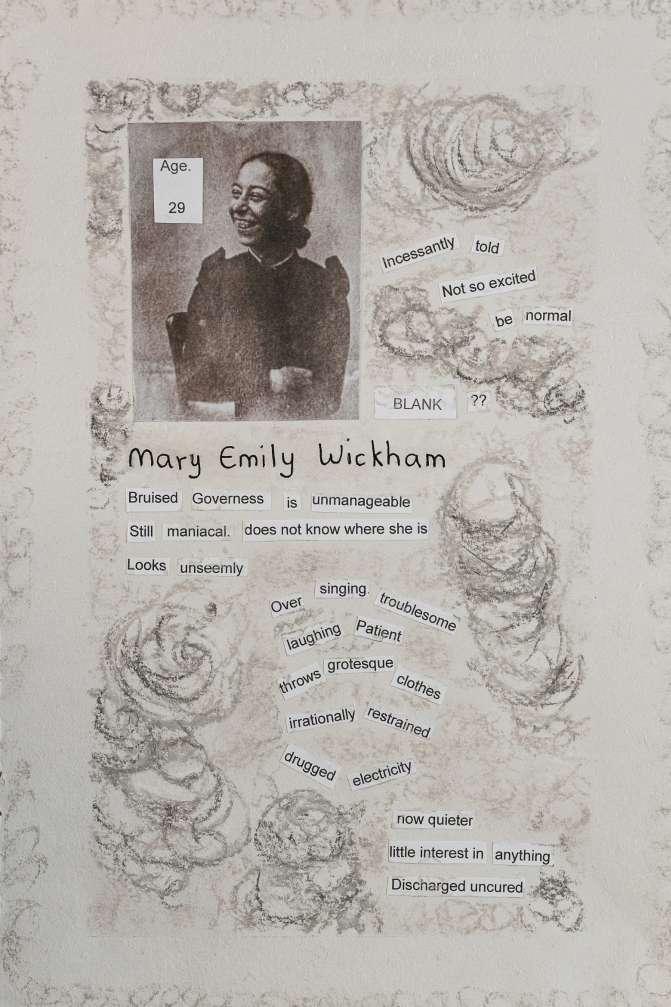 Age.
29
Incessantly told
Not so excited
be normal
BLANK ??
Mary Emily Wickham
Bruised Governess is unmanageable
Still maniacal. does not know where she is
Looks unseemly
Over singing. troublesome
laughing Patient
throws grotesque clothes
irrationally restrained
drugged electricity
now quieter
little interest in anything
Discharged uncured